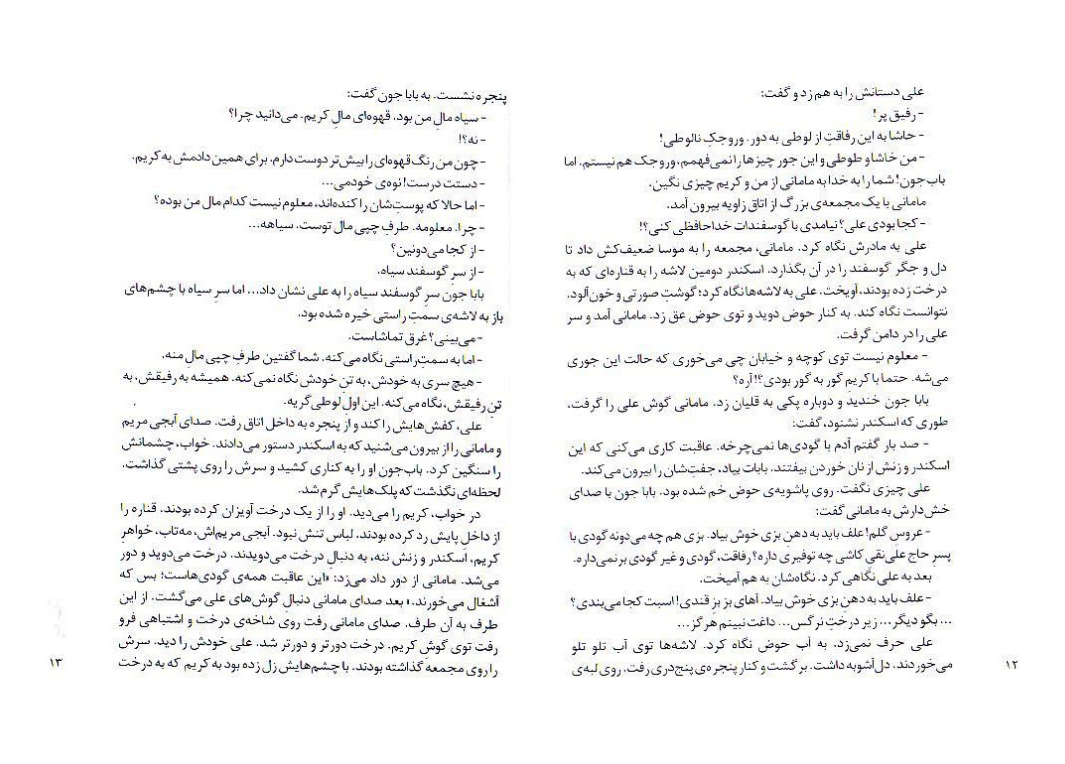 علی دستانش را به هم زد و گفت:
- رفیق پر!
- حاشا به این رفاقتِ از لوطی به دور. وروجکِ نالوطی!
- من خاشا و طوطی و این جور چیزها را نمی‌فهمم، وروجک هم نیستم. اما
باب‌جون! شما را به خدا به مامانی از من و کریم چیزی نگین.
مامانی با یک مجمعه‌ی بزرگ از اتاق زاویه بیرون آمد.
- کجا بودی علی؟ نیامدی با گوسفندات خداحافظی کنی؟!
علی به مادرش نگاه کرد. مامانی، مجمعه را به موسا ضعیف‌کش داد تا
دل و جگر گوسفند را در آن بگذارد. اسکندر دومین لاشه را به قناره‌ای که به
درخت زده بودند، آویخت. علی به لاشه‌ها نگاه کرد؛ گوشتِ صورتی و خون‌آلود.
نتوانست نگاه کند. به کنار حوض دوید و توی حوض عق زد. مامانی آمد و سر
علی را در دامن گرفت.
- معلوم نیست توی کوچه و خیابان چی می‌خوری که حالت این جوری
می‌شه. حتما با کریمِ گور به گور بودی؟! آره؟
بابا جون خندید و دوباره پکی به قلیان زد. مامانی گوش علی را گرفت،
طوری که اسکندر نشنود، گفت:
- صد بار گفتم آدم با گودی‌ها نمی‌چرخه. عاقبت کاری می‌کنی که این
اسکندر و زنش از نان خوردن بیفتند. بابات بیاد، جفتِ‌شان را بیرون می‌کند.
علی چیزی نگفت. روی پاشویه‌ی حوض خم شده بود. بابا جون با صدای
خش‌دارش به مامانی گفت:
- عروس گلم! علف باید به دهنِ بزی خوش بیاد. بزی هم چه می‌دونه گودی با
پسرِ حاج علی‌نقی کاشی چه توفیری داره؟ رفاقت، گودی و غیر گودی برنمی‌داره.
بعد به علی نگاهی کرد. نگاه‌شان به هم آمیخت.
- علف باید به دهنِ بزی خوش بیاد. آهای بز بزِ قندی! اسبت کجا می‌بندی؟
... بگو دیگر... زیر درختِ نرگس... داغت نبینم هرگز...
علی حرف نمی‌زد، به آب حوض نگاه کرد. لاشه‌ها توی آب تلو تلو
می‌خوردند. دل‌آشوبه داشت. برگشت و کنار پنجره‌ی پنج‌دری رفت. روی لبه‌ی
۱۲
پنجره نشست. به بابا جون گفت:
- سیاه مالِ من بود. قهوه‌ای مالِ کریم. می‌دانید چرا؟
- نه؟!
- چون من رنگ قهوه‌ای را بیش‌تر دوست دارم. برای همین دادمش به کریم.
- دستت درست! نوه‌ی خودمی...
- اما حالا که پوستِ‌شان را کنده‌اند، معلوم نیست کدام مال من بوده؟
- چرا. معلومه. طرفِ چپی مال توست. سیاهه...
- از کجا می‌دونین؟
- از سرِ گوسفند سیاه.
بابا جون سرِ گوسفند سیاه را به علی نشان داد... اما سرِ سیاه با چشم‌های
باز به لاشه‌ی سمتِ راستی خیره شده بود.
- می‌بینی؟ غرق تماشاست.
- اما به سمتِ راستی نگاه می‌کنه. شما گفتین طرفِ چپی مالِ منه.
- هیچ سری به خودش، به تنِ خودش نگاه نمی‌کنه. همیشه به رفیقش، به
تنِ رفیقش، نگاه می‌کنه. این اولِ لوطی‌گریه.
علی، کفش‌هایش را کند و از پنجره به داخل اتاق رفت. صدای آبجی مریم
و مامانی را از بیرون می‌شنید که به اسکندر دستور می‌دادند. خواب، چشمانش
را سنگین کرد. باب‌جون او را به کناری کشید و سرش را روی پشتی گذاشت.
لحظه‌ای نگذشت که پلک‌هایش گرم شد.
در خواب، کریم را می‌دید. او را از یک درخت آویزان کرده بودند. قناره را
از داخلِ پایش رد کرده بودند. لباس تنش نبود. آبجی مریم‌اش، مه‌تاب، خواهرِ
کریم، اسکندر و زنش ننه، به دنبالِ درخت می‌دویدند. درخت می‌دوید و دور
می‌شد. مامانی از دور داد می‌زد: «این عاقبت همه‌ی گودی‌هاست؛ بس که
آشغال می‌خورند.» بعد صدای مامانی دنبالِ گوش‌های علی می‌گشت. از این
طرف به آن طرف. صدای مامانی رفت روی شاخه‌ی درخت و اشتباهی فرو
رفت توی گوشِ کریم. درخت دورتر و دورتر شد. علی خودش را دید. سرش
را روی مجمعه گذاشته بودند. با چشم‌هایش زل زده بود به کریم که به درخت
۱۳